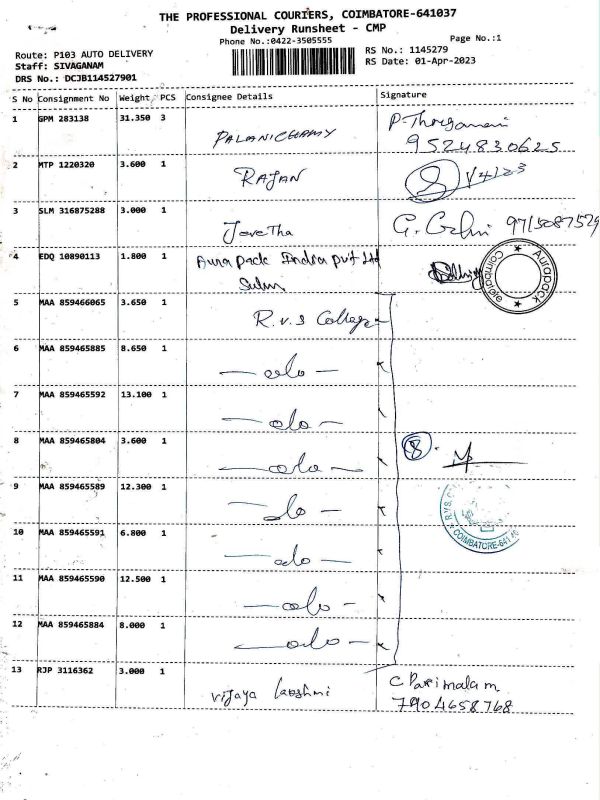 THE PROFESSIONAL COURIERS, COIMBATORE-641037
Delivery Runsheet - CMP
Phone No.:0422-3505555
Page No.:1
Route: P103 AUTO DELIVERY
RS No.: 1145279
Staff: SIVAGANAM
RS Date: 01-Apr-2023
DRS No.: DCJB114527901
S No Consignment No Weight PCS Consignee Details Signature
1 GPM 283138 31.350 3 PALANICHAMY
9524830625
2 MTP 1220320 3.600 1 RAJAN 1/4/23
3 SLM 316875288 3.000 1 9715087529
4 EDQ 10890113 1.800 1 Aura pack India pvt ltd
Sulur
Aurapack
Coimbatore
5 MAA 859466065 3.650 1 R.V.S College
6 MAA 859465885 8.650 1 —do—
7 MAA 859465592 13.100 1 —do—
8 MAA 859465804 3.600 1 —do— 8.
9 MAA 859465589 12.300 1 —do—
R.V.S.
COIMBATORE-641
10 MAA 859465591 6.800 1 —do—
11 MAA 859465590 12.500 1 —do—
12 MAA 859465884 8.000 1 —do—
13 RJP 3116362 3.000 1 Vijaya Lakshmi C Parimalam
7904658768